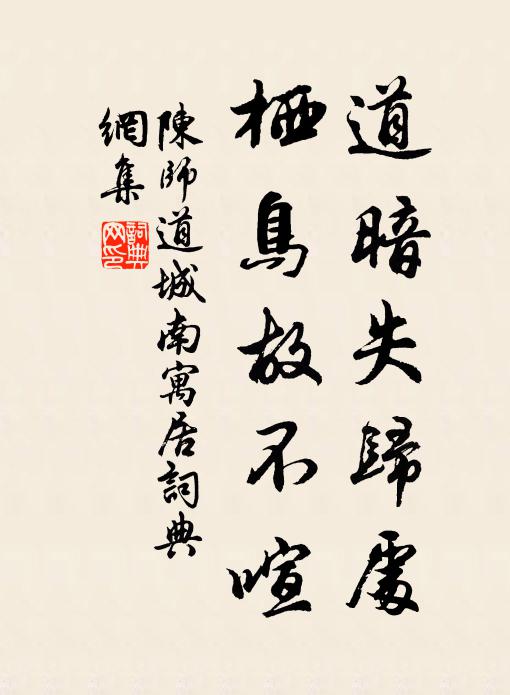 道暗失歸處
栖鳥故不喧
陳師道城南寓居詞典
網集
詞典
网印